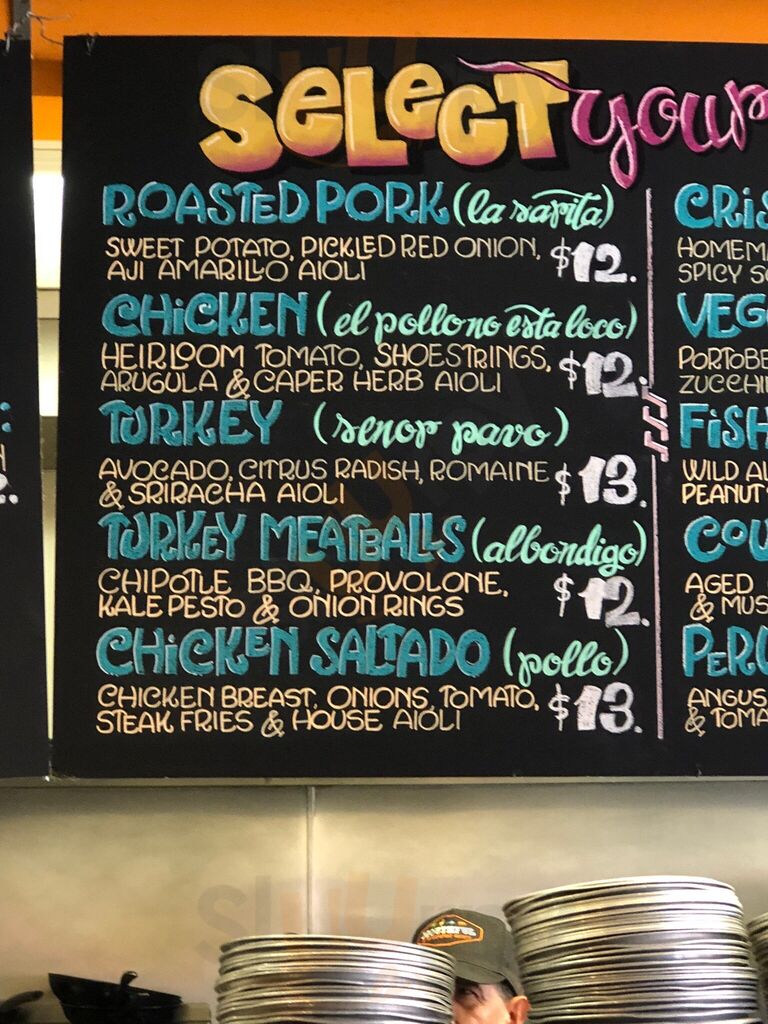 SELECT your
ROASTED PORK (la sarita)
SWEET POTATO, PICKLED RED ONION, $12.
AJI AMARILLO AIOLI
CHICKEN (el pollo no esta loco)
HEIRLOOM TOMATO, SHOESTRINGS, $12.
ARUGULA & CAPER HERB AIOLI
TURKEY (senor pavo)
AVOCADO, CITRUS RADISH, ROMAINE $13.
& SRIRACHA AIOLI
TURKEY MEATBALLS (albondigo)
CHIPOTLE BBQ, PROVOLONE, $12.
KALE PESTO & ONION RINGS
CHICKEN SALTADO (pollo)
CHICKEN BREAST, ONIONS, TOMATO, $13.
STEAK FRIES & HOUSE AIOLI
CRIS
HOMEMA
SPICY S
VEG
PORTOBE
ZUCCHI
FISH
WILD AL
PEANUT
COU
AGED
& MUS
PERU
ANGUS
& TOMA